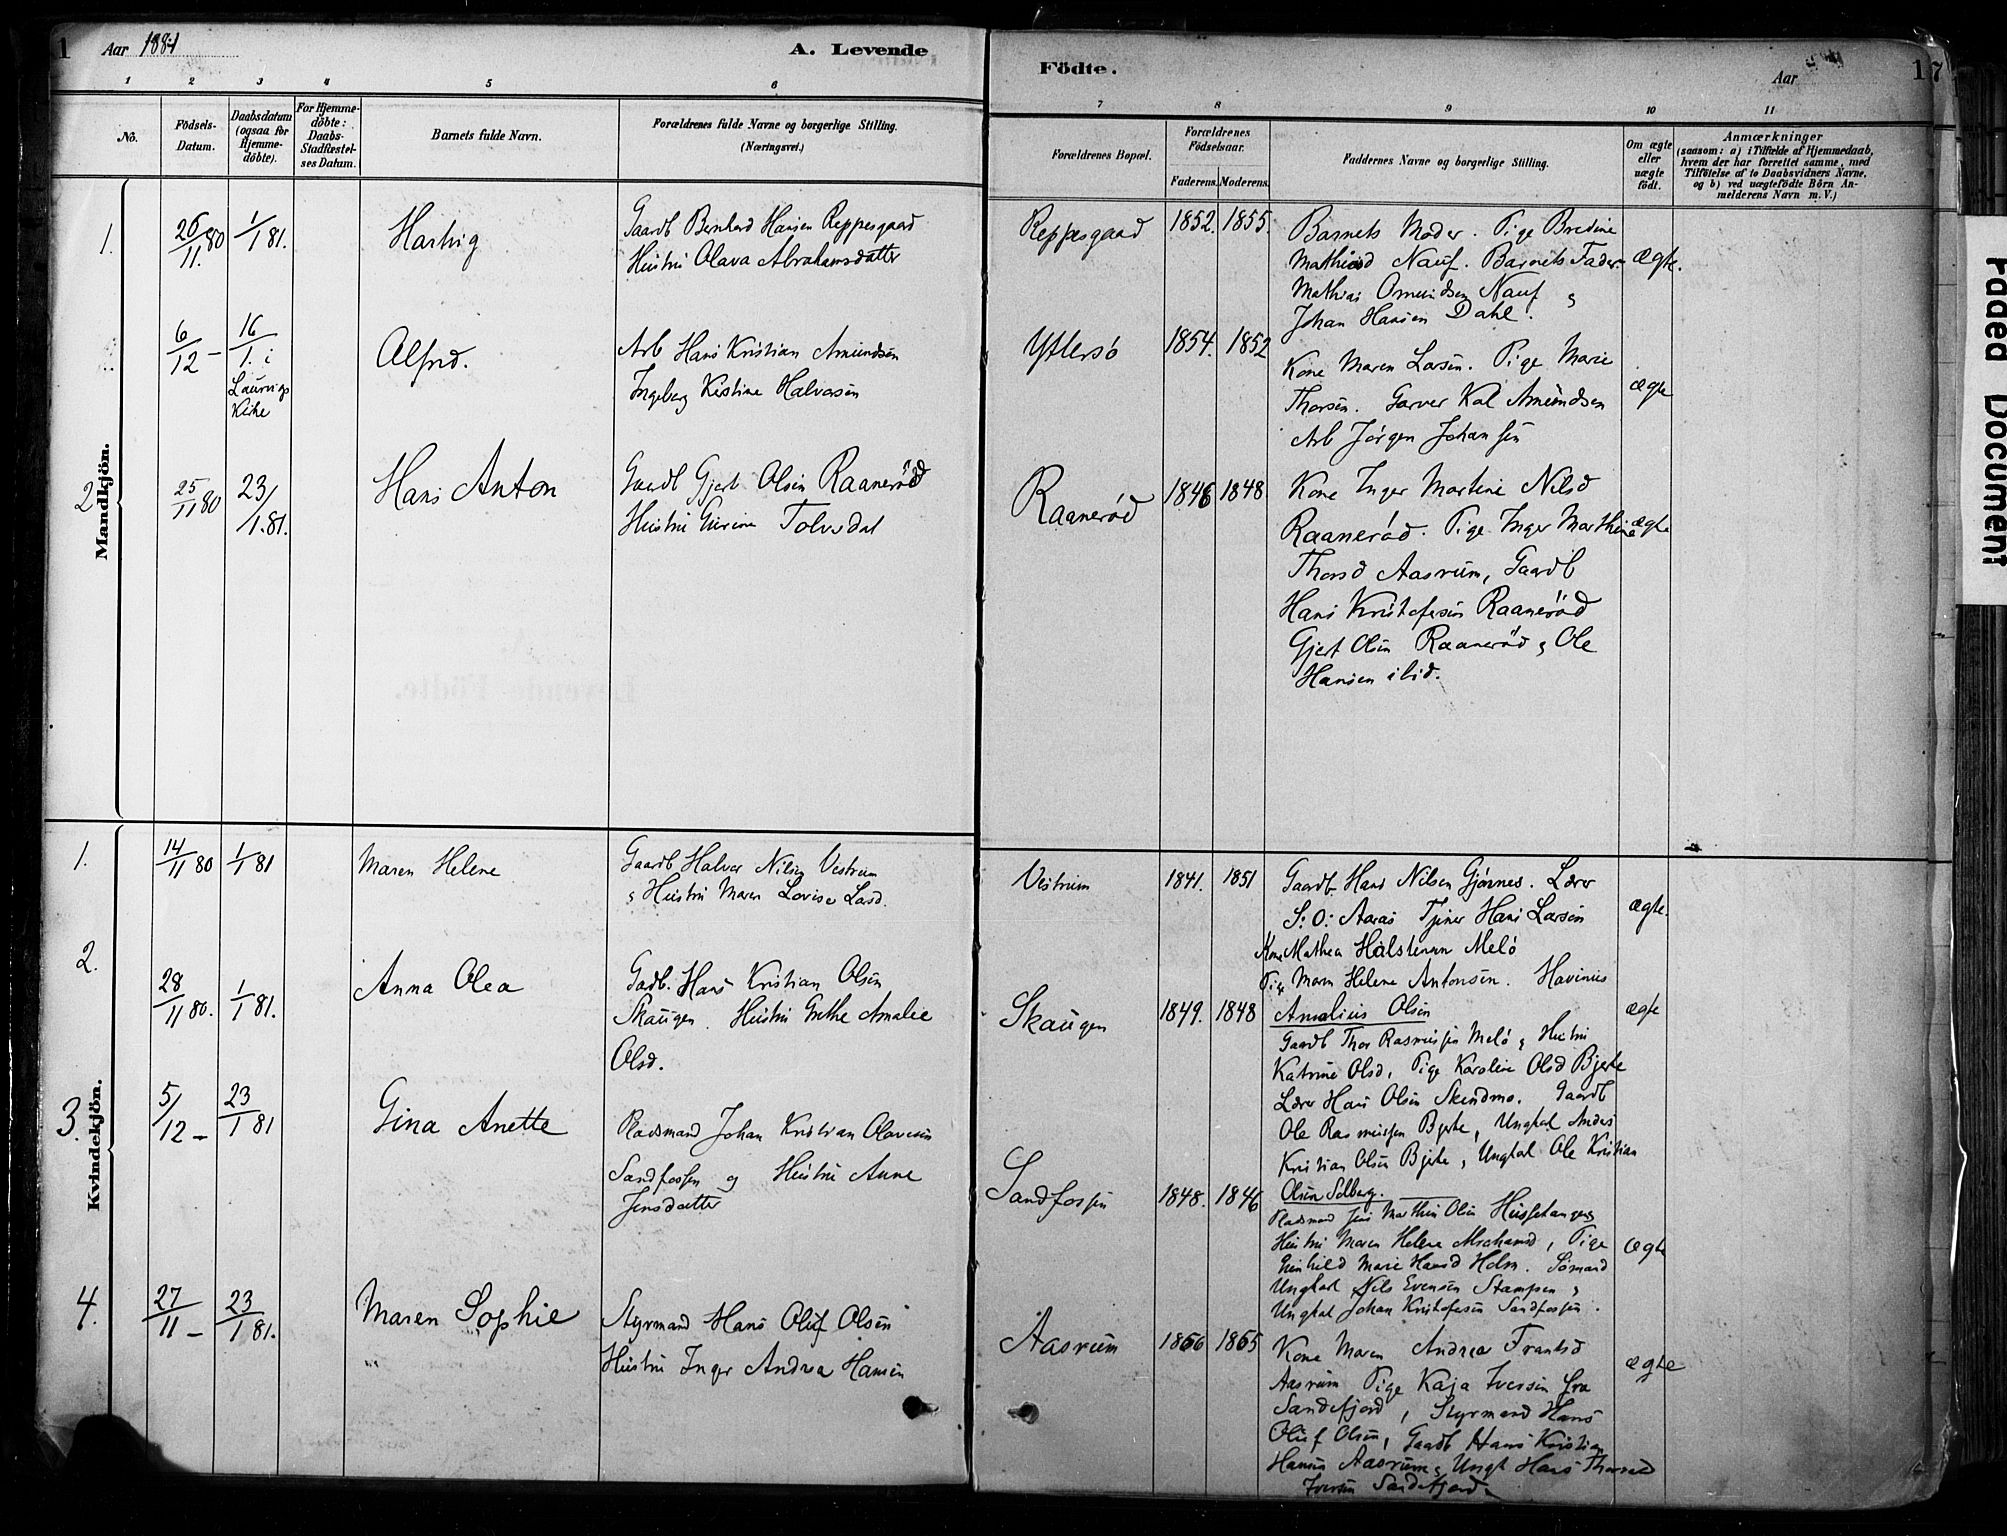 1 Aar 1881 A. Levende
1 2 3 4 5 6
No. Födsels-Datum. Daabsdatum (ogsaa for Hjemmedöbte). For Hjemmedöbte: Daabs-Stadfæstelses Datum. Barnets fulde Navn. Forældrenes fulde Navne og borgerlige Stilling. (Næringsvei.)
Mandkjön.
1. 26/11 80 1/1 81. Hartvig Gaardb Bernhard Hansen Reppesgaard
Hustru Olava Abrahamsdatter
6/12 – 16/1. i Laurvigs Kirke Alfred. Arb Hans Kristian Amundsen
Ingeborg Kirstine Halvorsen
2. 25/11 80 23/1. 81. Hans Anton Gaardb Gjert Olsen Raanerød
Hustru Gurine Tolvsdat
Kvindekjön.
1. 14/11 80 1/1 81 Maren Helene Gaardb Halvor Nilsen Vestrum
& Hustru Maren Lovise Larsd.
2. 28/11 80. 1/1 81. Anna Olea Gadb. Hans Kristian Olsen
Skaugen. Hustru Grethe Amalie
Olsd.
3. 5/12 – 23/1 81 Gina Anette Pladsmand Johan Kristian Olavesen
Sandfossen og Hustru Anne
Jensdatter
4. 27/11 – 23/1 81. Maren Sophie Styrmand Hans Oluf Olsen
Hustru Inger Andrea Hansen
Födte. Aar 17
7 8 9 10 11
Forældrenes Bopæl. Forældrenes Födselsaar. Faderens. Moderens. Faddernes Navne og borgerlige Stilling. Om ægte eller uægte födt. Anmærkninger
(saasom: a) i Tilfælde af Hjemmedaab,
hvem der har forrettet samme, med
Tilföielse af to Daabsvidners Navne,
og b) ved uægtefödte Börn Anmelderens Navn m. V.)
Reppesgaard 1852. 1855. Barnets Moder. Pige Bredine
Mathiasd Nauf. Barnets Fader. Ægte.
Mathias Omundsen Nauf &
Johan Hansen Dahl.
Yttersø 1854. 1852 Kone Maren Larsen. Pige Marie
Thorsen. Garver Karl Amundsen ægte
Arb Jørgen Johansen
Raanerød 1846 1848 Kone Inger Martine Nilsd
Raanerød. Pige Inger Marthine ægte
Thorsd Aasrum, Gaardb
Hans Kristofersen Raanerød
Gjert Olsen Raanerød & Ole
Hansen ibid.
Vestrum 1841. 1851 Gaardb Hans Nilsen Gjønnes. Lærer
S. O. Aaras Tjener Hans Larsen ægte.
Kone Mathea Halstensen Melø
Pige Maren Helene Antonsen. Havinius
Skaugen 1849. 1848 Amalius Olsen ægte
Gaardb Thor Rasmussen Melø & Hustru
Katrine Olsd, Pige Karoline Olsd Bjerke
Lærer Hans Olsen Skindmo. Gaardb
Ole Rasmussen Bjerke, Ungkal Anders
Kristian Olsen Bjerke, Ungkal. Ole Kristian
Olsen Solberg.
Sandfossen 1848. 1846 Pladsmand Jens Marthin Olsen Hussetangen &
Hustru Maren Helene Abrahamsd, Pige ægte
Gunhild Marie Hansd Holm. Sømand
Ungkal Nils Evensen Stampen &
Ungkal Johan Kristofersen Sandfossen.
Aasrum 1856 1855 Kone Maren Andrea Frantsd ægte
Aasrum Pige Kaja Iversen fra
Sandefjord, Styrmand Hans
Oluf Olsen, Gaardb Hans Kristian
Hansen Aasrum & Ungk Hans Thorvald
Iversen Sandefjord.
Faded Document